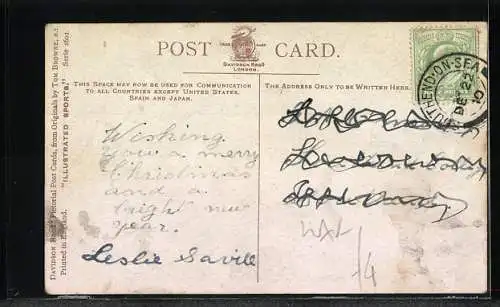 POST CARD.
TRADE MARK
DAVIDSON BROS
LONDON.
THIS SPACE MAY NOW BE USED FOR COMMUNICATION
TO ALL COUNTRIES EXCEPT UNITED STATES.
SPAIN AND JAPAN.
THE ADDRESS ONLY TO BE WRITTEN HERE.
DAVIDSON BROS' Pictorial Post Cards, from Originals by TOM BROWNE, R.I.
Printed in England.
"ILLUSTRATED SPORTS."
Serie 2601.
SOUTHEND-ON-SEA
DE 22
10
Wishing
you a merry
Christmas
and a
bright new
year.
Leslie Savill
/4